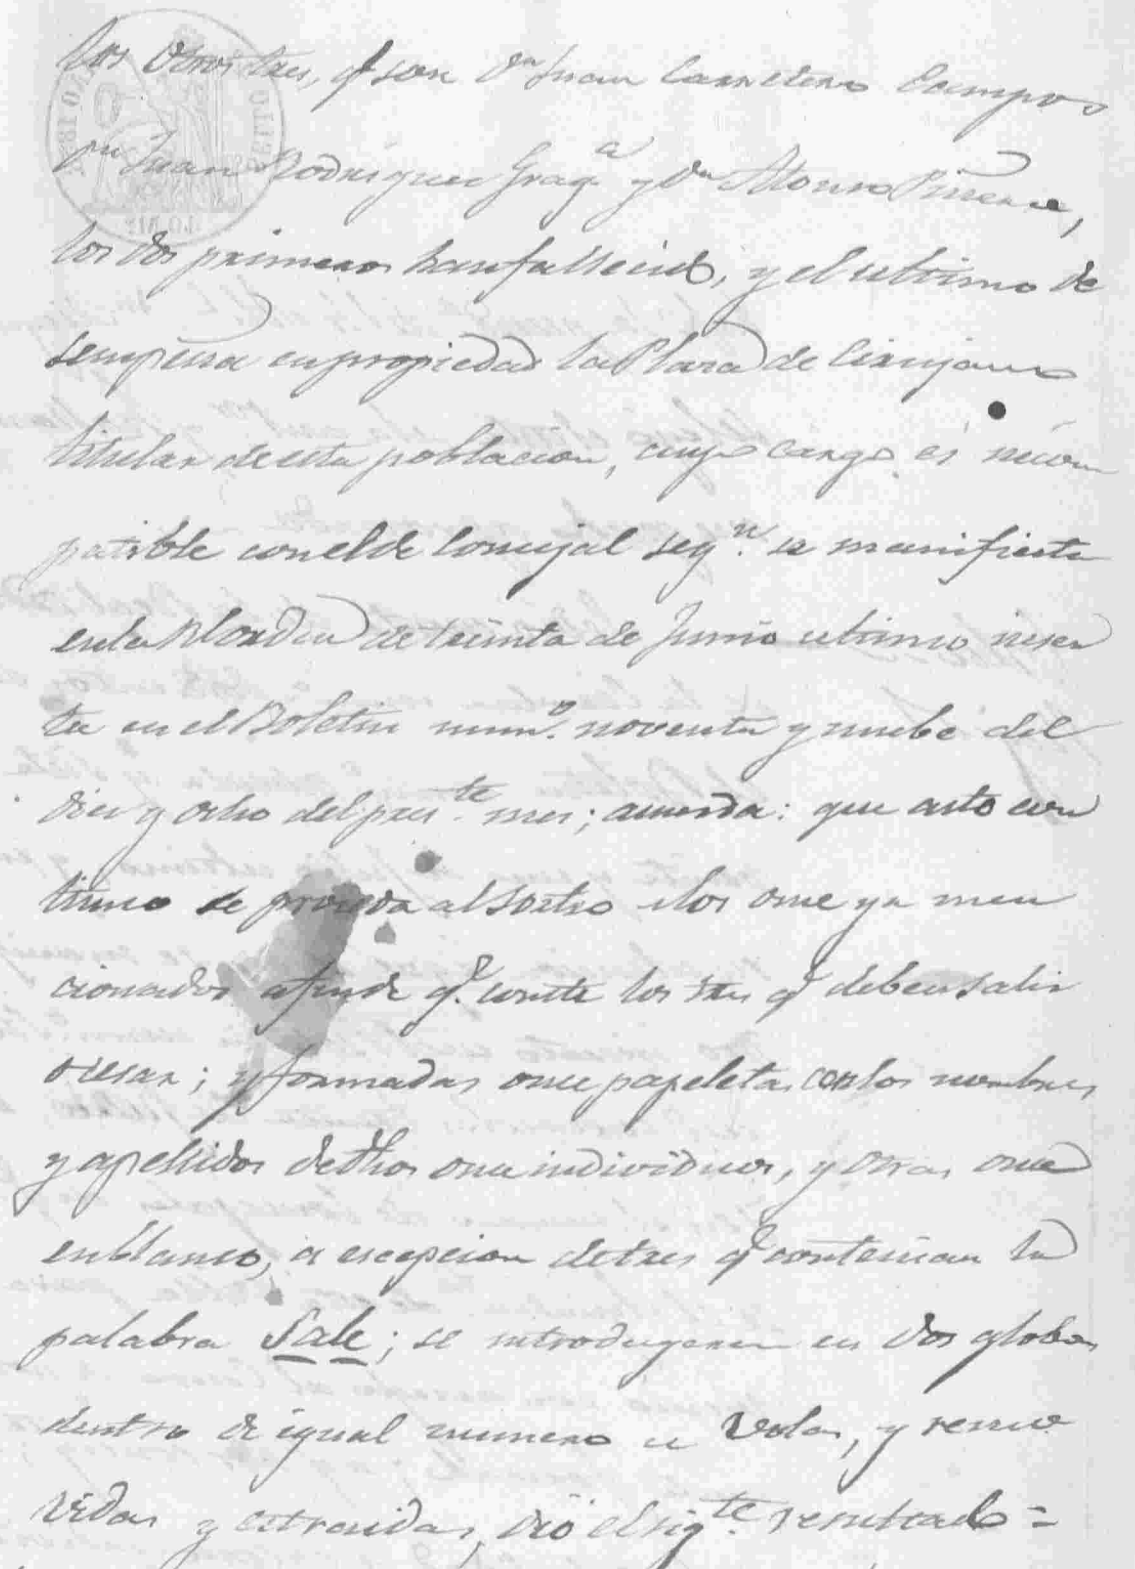 los otros tres, q.e son Dn Juan Carretero Campos
Dn Juan Rodriguez Frag.a y Dn Alonso
los dos primeros han fallecido, y el ultimo de
sempeña en propiedad la Plaza de Cirujano
titular de esta poblacion, cuyo cargo es incom
patible con el de Concejal seg.n se manifiesta
en la Rl orden de treinta de Junio ultimo inser
ta en el Boletin num.o noventa y nuebe del
diez y ocho del pres.te mes; acuerda: que acto con
tinuo se proceda al sorteo de los once ya men
cionados afin de q.e conste los tres q.e deben salir
ó cesar; y formadas once papeletas con los nombres
y apellidos de dhos once individuos, y otras once
en blanco, á escepcion de tres q.e contenian la
palabra Sale; se introdugeron en dos globos
dentro de igual numero de volas, y remo
vidas y estraidas, dió el sig.te resultado =